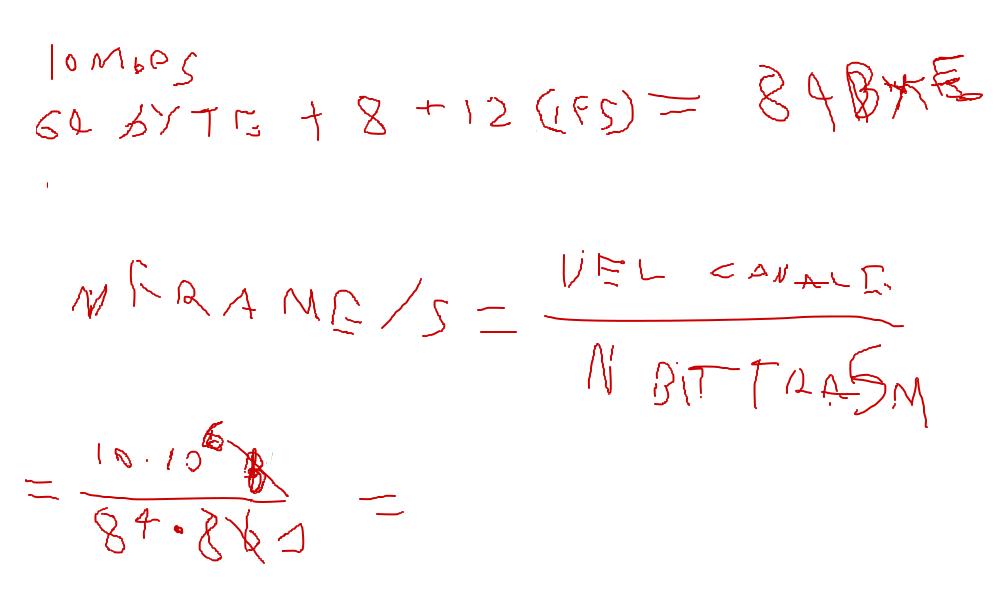 10 Mbps
64 BYTE + 8 + 12 (IFS) = 84 BYTE
N FRAME/S = VEL CANALE
N BIT TRASM
= 10 · 10⁶ b
84 · 8 b =